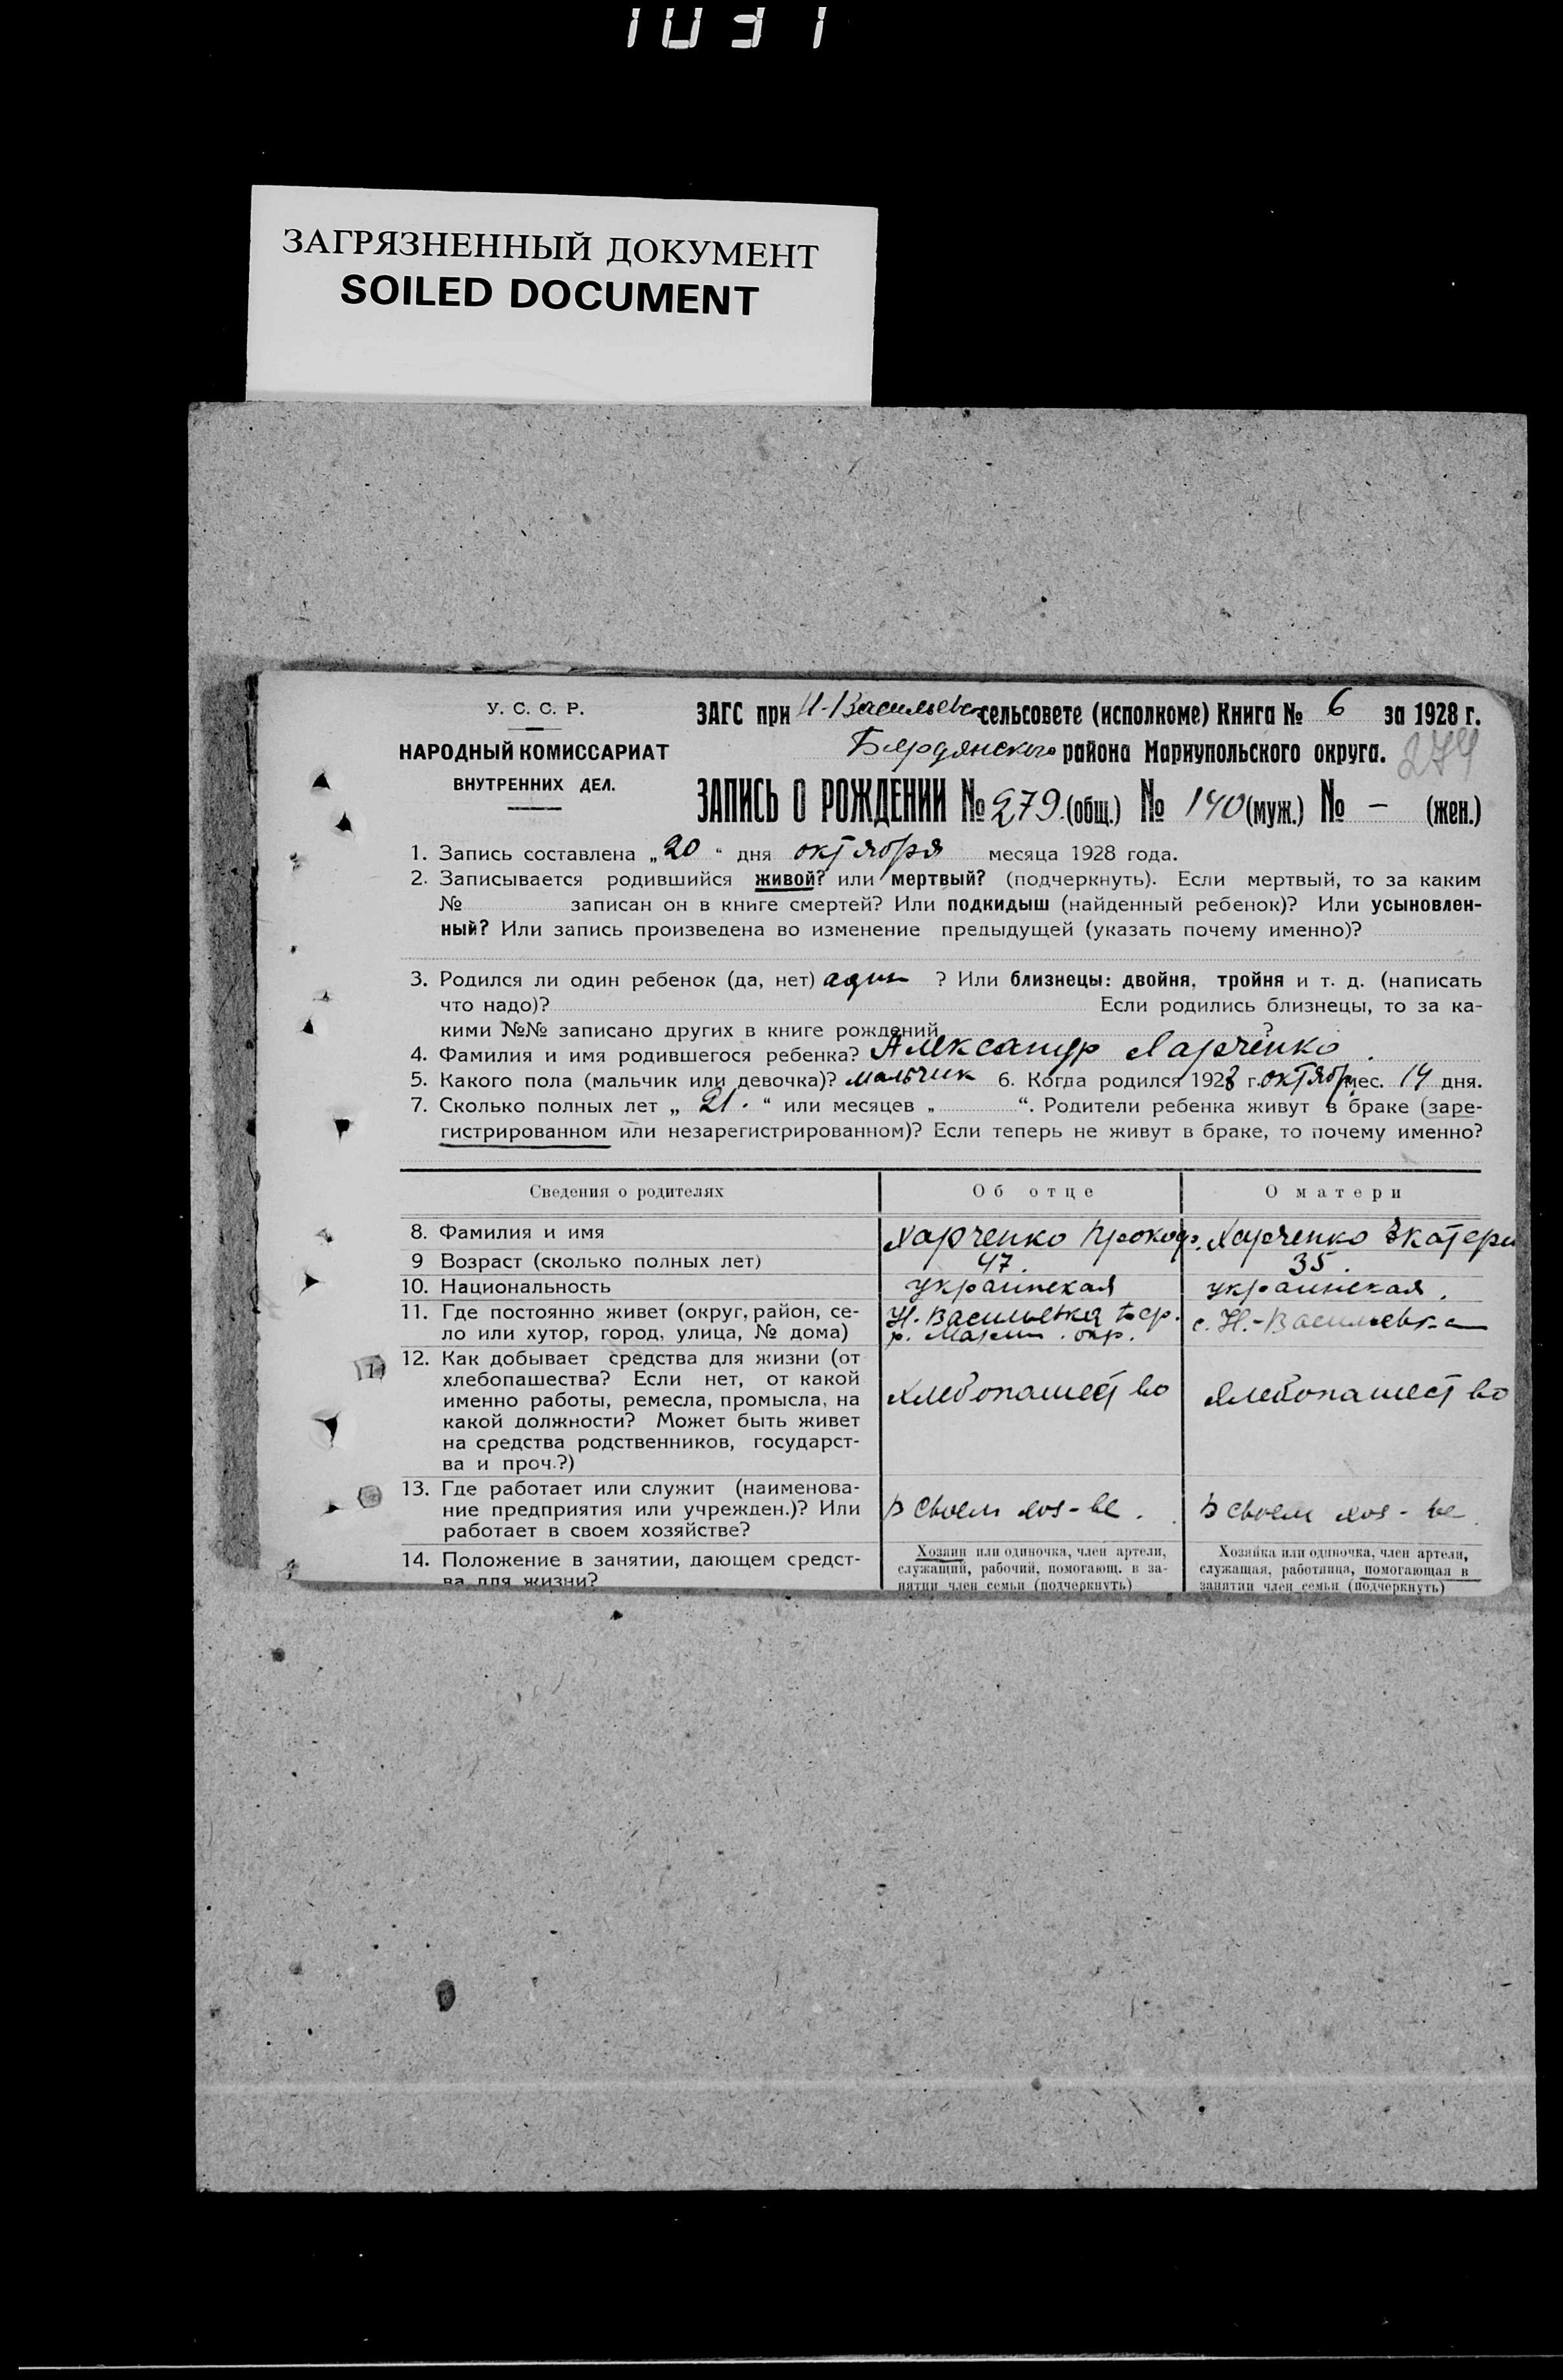 1031
ЗАГРЯЗНЕННЫЙ ДОКУМЕНТ
SOILED DOCUMENT
У. С. С. Р.
НАРОДНЫЙ КОМИССАРИАТ
ВНУТРЕННИХ ДЕЛ.
ЗАГС при Н-Васильевск сельсовете (исполкоме) Книга № 6 за 1928 г.
Бердянского района Мариупольского округа.
274
ЗАПИСЬ О РОЖДЕНИИ № 279. (общ.) № 140 (муж.) № – (жен.)
1. Запись составлена „20“ дня октября месяца 1928 года.
2. Записывается родившийся живой? или мертвый? (подчеркнуть). Если мертвый, то за каким
№ записан он в книге смертей? Или подкидыш (найденный ребенок)? Или усыновлен-
ный? Или запись произведена во изменение предыдущей (указать почему именно)?
3. Родился ли один ребенок (да, нет) один ? Или близнецы: двойня, тройня и т. д. (написать
что надо)? Если родились близнецы, то за ка-
кими №№ записано других в книге рождений ?
4. Фамилия и имя родившегося ребенка? Александр Харченко.
5. Какого пола (мальчик или девочка)? мальчик 6. Когда родился 1928 г. октябр мес. 14 дня.
7. Сколько полных лет „ 21. “ или месяцев „ “. Родители ребенка живут в браке (заре-
гистрированном или незарегистрированном)? Если теперь не живут в браке, то почему именно?
Сведения о родителях Об отце О матери
8. Фамилия и имя Харченко Прокоф. Харченко Екатери
9 Возраст (сколько полных лет) 47. 35.
10. Национальность украинская украинская.
11. Где постоянно живет (округ, район, се-
ло или хутор, город, улица, № дома)
Н.-Васильевка Бер.
р. окр.
с. Н.-Васильевка
12. Как добывает средства для жизни (от
хлебопашества? Если нет, от какой
именно работы, ремесла, промысла, на
какой должности? Может быть живет
на средства родственников, государст-
ва и проч.?)
хлебопашество хлебопашество
13. Где работает или служит (наименова-
ние предприятия или учрежден.)? Или
работает в своем хозяйстве?
в своем хоз-ве. в своем хоз-ве.
14. Положение в занятии, дающем средст-
ва для жизни?
Хозяин или одиночка, член артели,
служащий, рабочий, помогающ. в за-
нятии член семьи (подчеркнуть)
Хозяйка или одиночка, член артели,
служащая, работница, помогающая в
занятии член семьи (подчеркнуть)